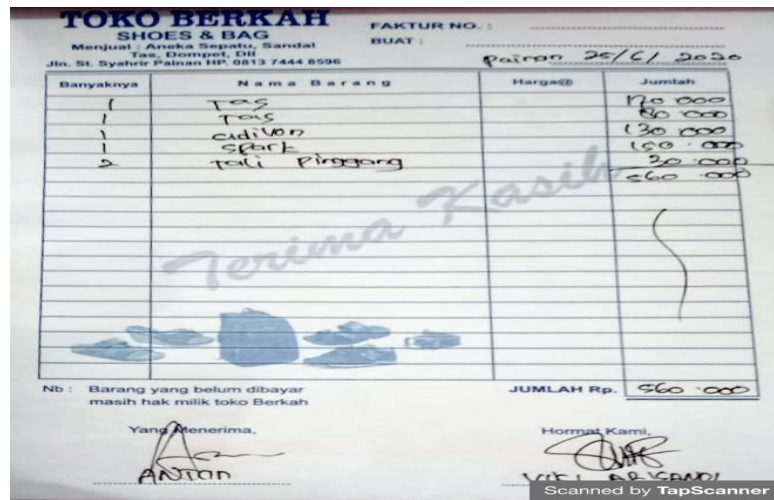 TOKO BERKAH
SHOES & BAG
Menjual : Aneka Sepatu, Sandal
Tas, Dompet, Dll
Jln. St. Syahrir Painan HP. 0813 7444 8596
FAKTUR NO. :
BUAT :
Painan 25/6/2020
Banyaknya Nama Barang Harga@ Jumlah
1 Tas 000
1 Tas 80 000
1 130 000
1 Spark 150.000
2 Tali Pinggang 000
560.000
Terima Kasih
Nb : Barang yang belum dibayar
masih hak milik toko Berkah
JUMLAH Rp. 560.000
Yang Menerima,
Hormat Kami,
ANTON
VIKI ARISANDI
Scanned by TapScanner